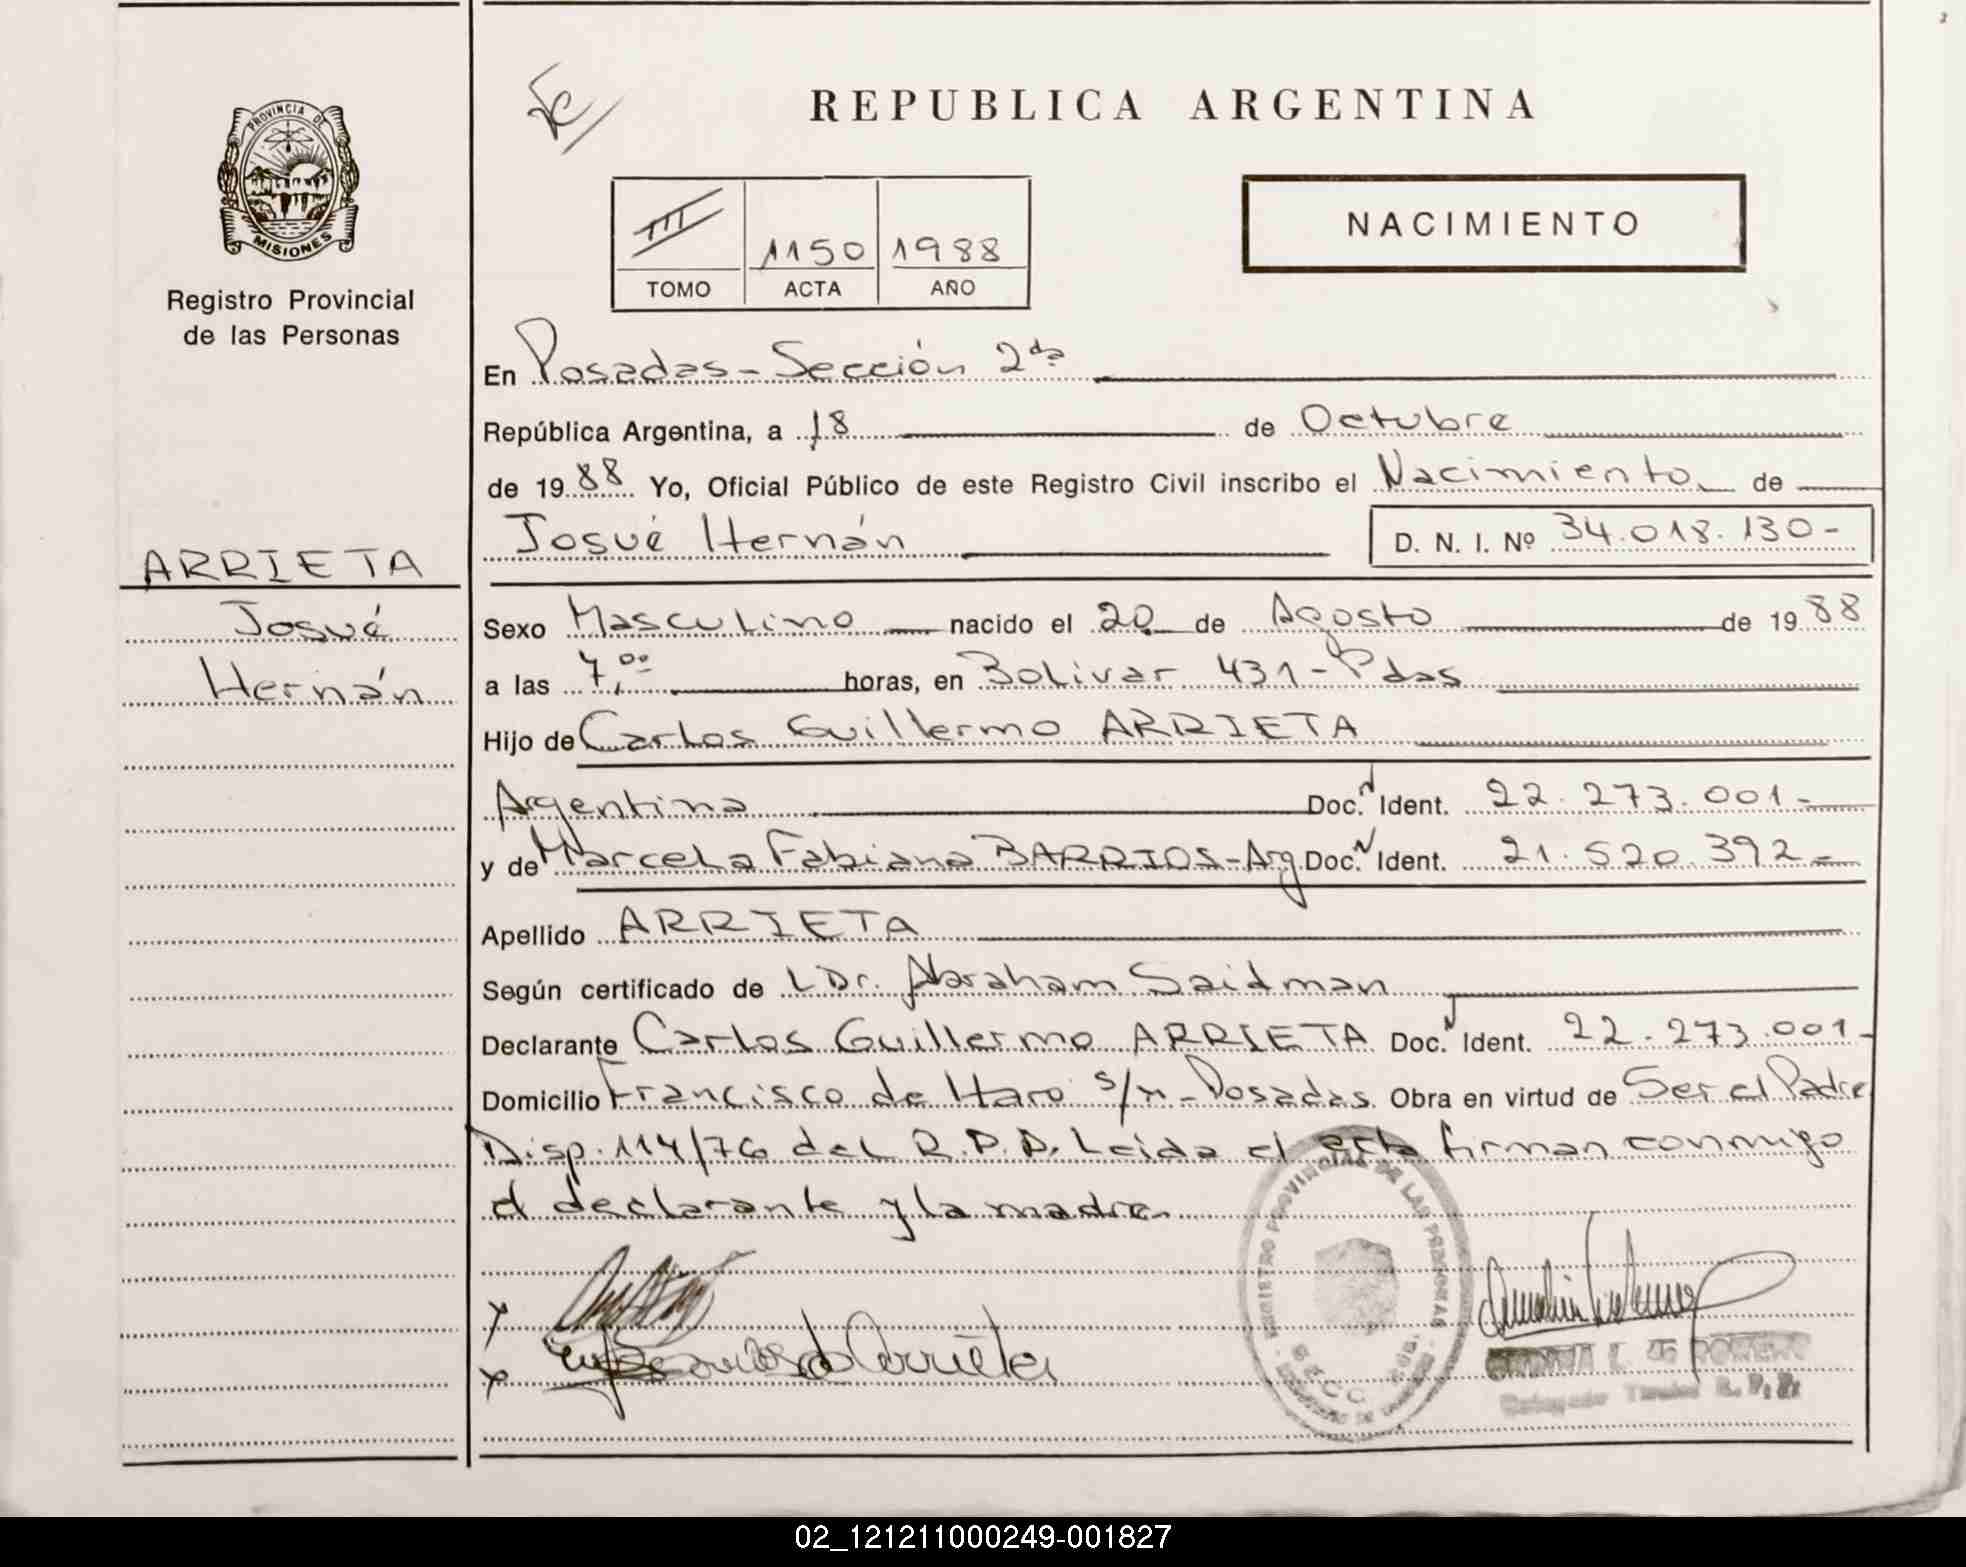 PROVINCIA DE
MISIONES
Registro Provincial
de las Personas
ARRIETA
Josué
Hernán
REPUBLICA ARGENTINA
III 1150 1988
TOMO ACTA AÑO
NACIMIENTO
En Posadas - Sección 2da
República Argentina, a 18 de Octubre
de 1988 Yo, Oficial Público de este Registro Civil inscribo el Nacimiento de
Josué Hernán D. N. I. Nº 34.018.130-
Sexo Masculino nacido el 20 de Agosto de 1988
a las 7,00 horas, en Bolivar 431-Pdas
Hijo de Carlos Guillermo ARRIETA
Argentina Doc. Ident. 22.273.001-
y de Marcela Fabiana BARRIOS-Arg. Doc. Ident. 21.520.392-
Apellido ARRIETA
Según certificado de Dr. Abraham Saidman
Declarante Carlos Guillermo ARRIETA Doc. Ident. 22.273.001-
Domicilio Francisco de Haro s/n - Posadas Obra en virtud de Ser el Padre
Disp. 114/76 del R.P.P. Leida el acta firman conmigo
el declarante y la madre
REGISTRO PROVINCIAL DE LAS PERSONAS
SECC. 2da.
02_121211000249-001827